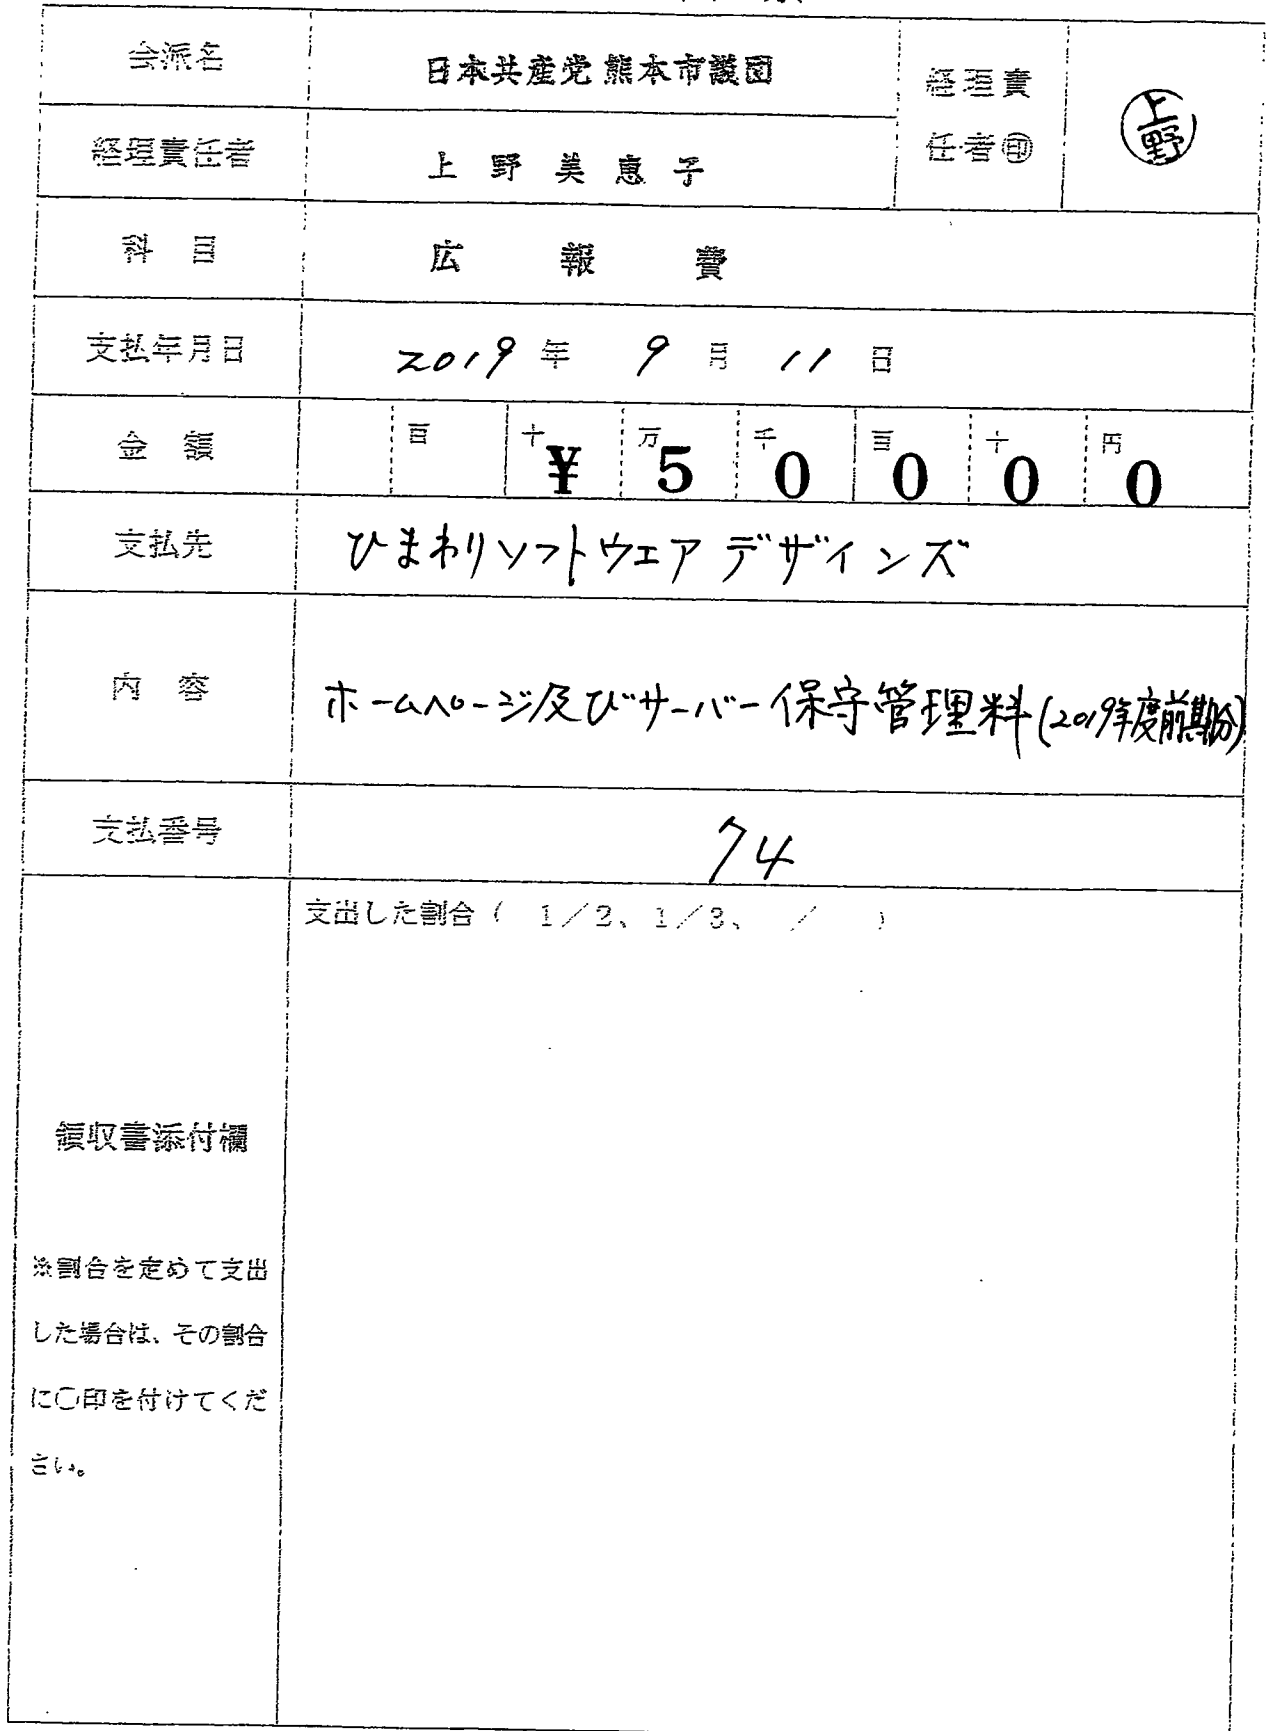 会派名 日本共産党熊本市議団 経理責任者㊞ 上野
経理責任者 上野美恵子
科目 広報費
支払年月日 2019年9月11日
金額 百 十 万 千 百 十 円 ¥50000
支払先 ひまわりソフトウェアデザインズ
内容 ホームページ及びサーバー保守管理料(2019年度前期分)
支払番号 74
支出した割合( 1/2、1/3、 / )
領収書添付欄
※割合を定めて支出
した場合は、その割合
に〇印を付けてくだ
さい。